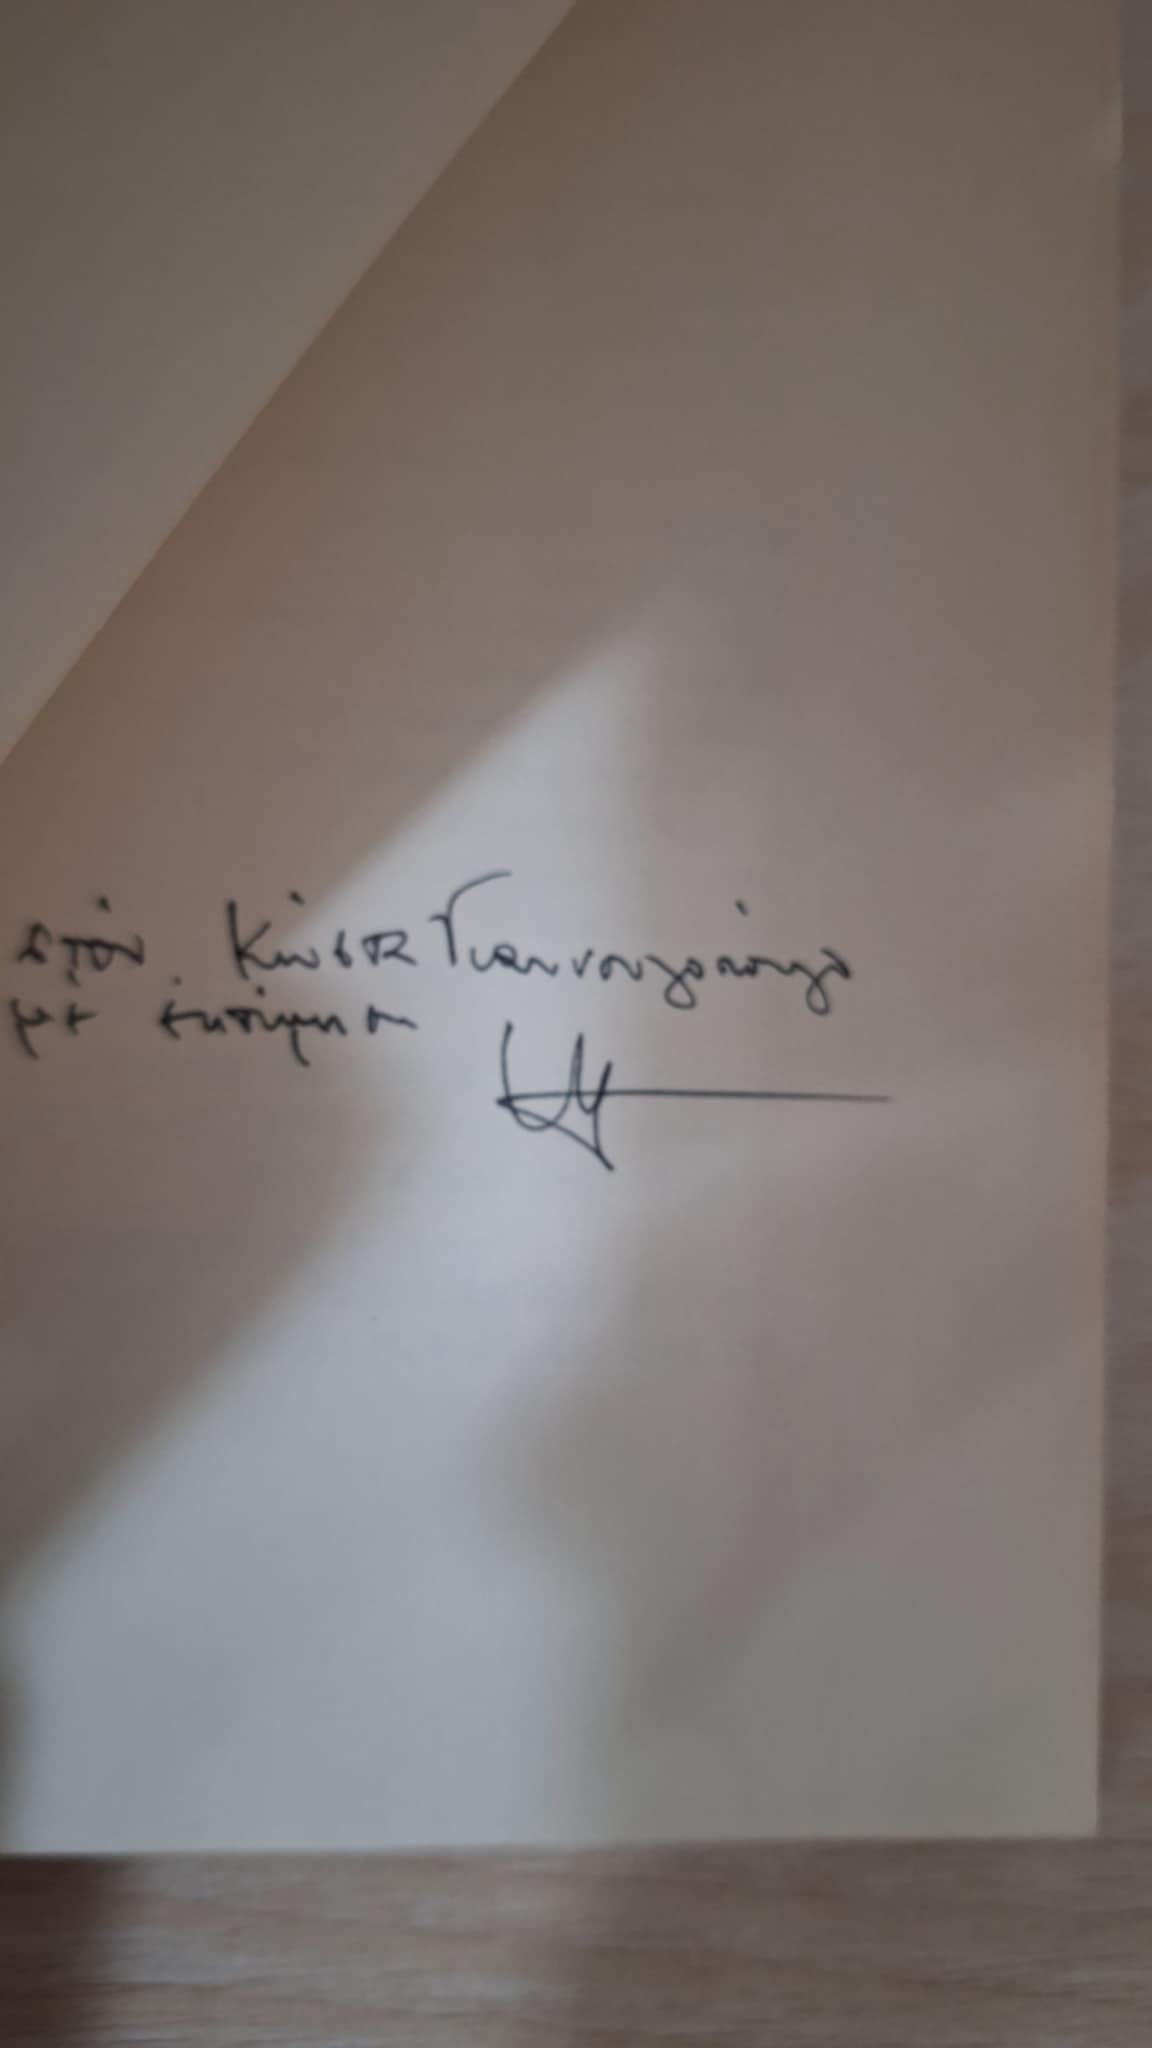 στόν Κώστα Γιαννουλόπουλο
με εκτίμηση